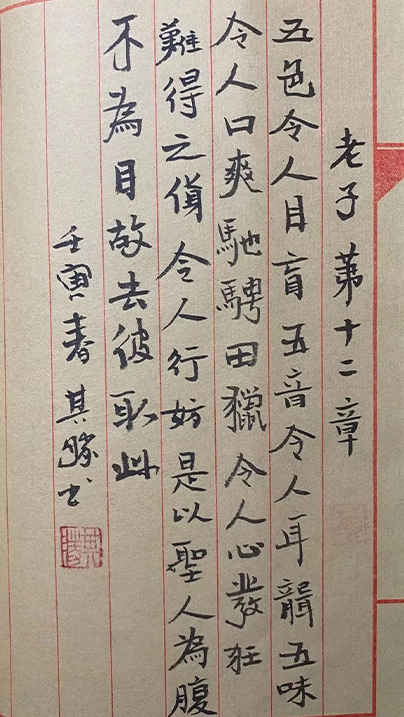 老子第十二章
五色令人目盲五音令人耳聾五味
令人口爽馳騁田獵令人心發狂
難得之貨令人行妨是以聖人為腹
不為目故去彼取此
壬寅春其勝书